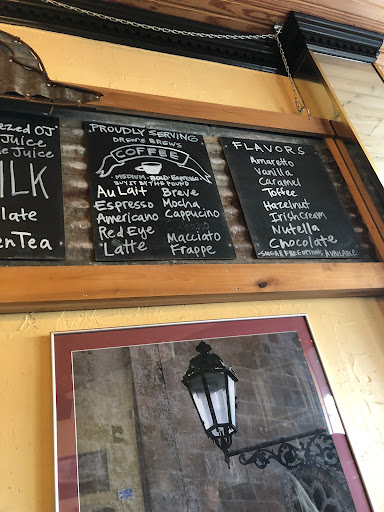 ezed OJ
Juice
e Juice
ILK
olate
enTea
PROUDLY SERVING
DREW'S BREWS
COFFEE
MEDIUM · BOLD · ESPRESSO
BUY IT BY THE POUND
Au Lait Breve
Espresso Mocha
Americano Cappucino
Red Eye
Latte Macciato
Frappe
FLAVORS
Amaretto
Vanilla
Caramel
Toffee
Hazelnut
Irish Cream
Nutella
Chocolate
SUGAR FREE OPTIONS AVAILABLE